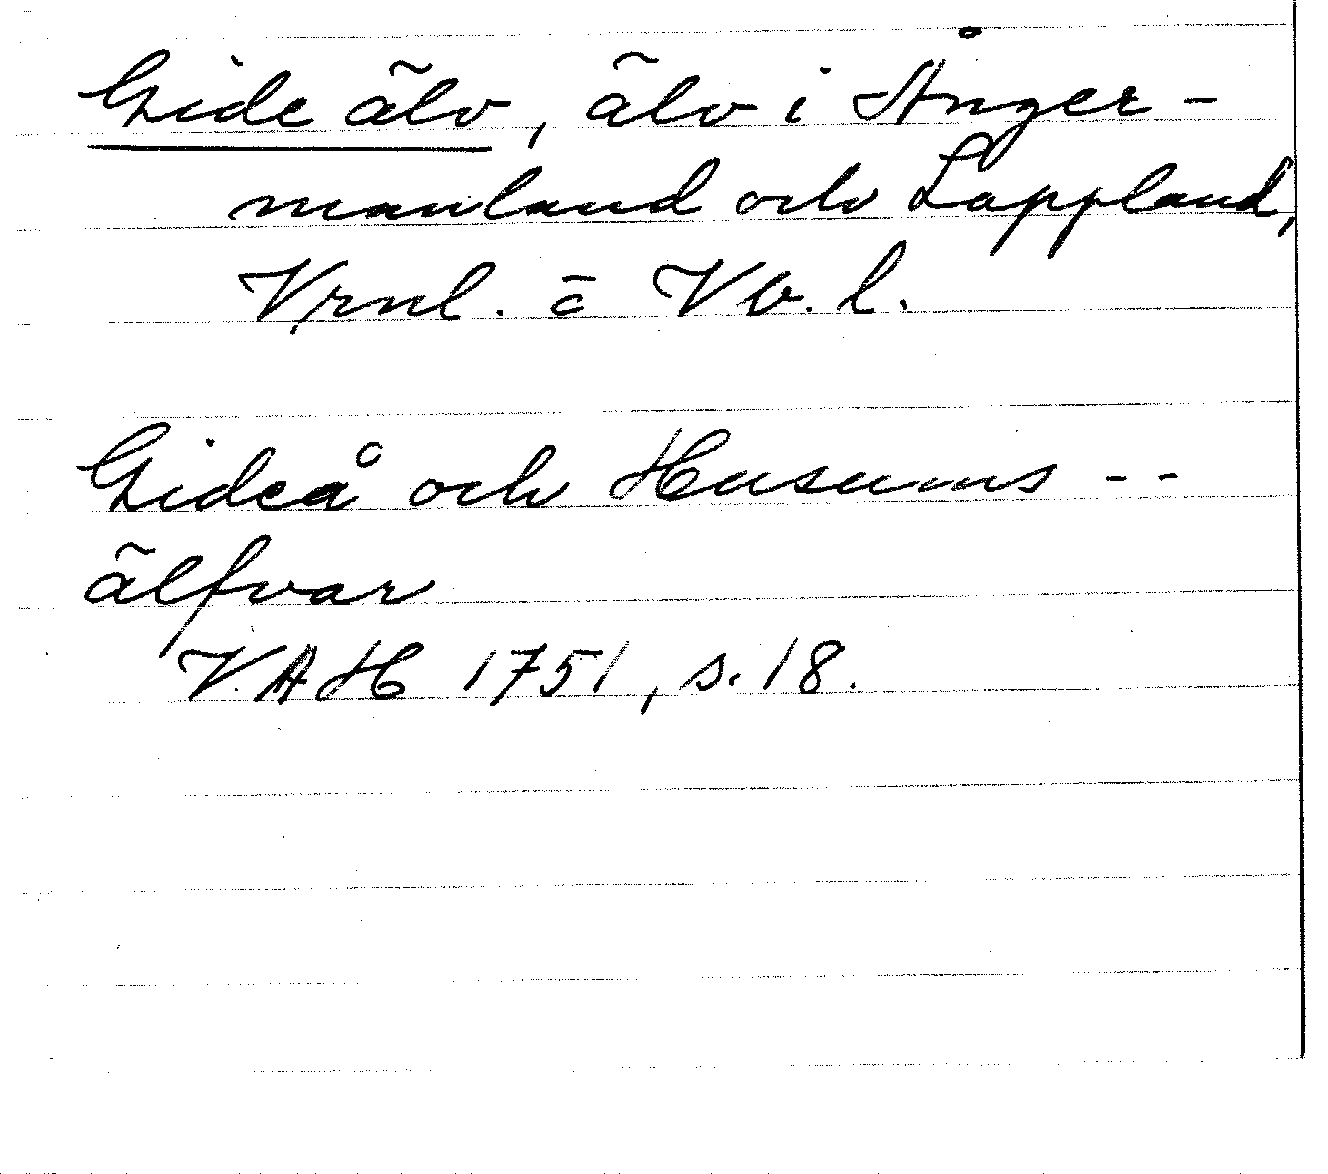 Gide älv, älv i Ånger-
manland och Lappland,
Vrnl. o Vb. l.
Gideå och Husums - -
älfvar
V.A H 1751, s. 18.